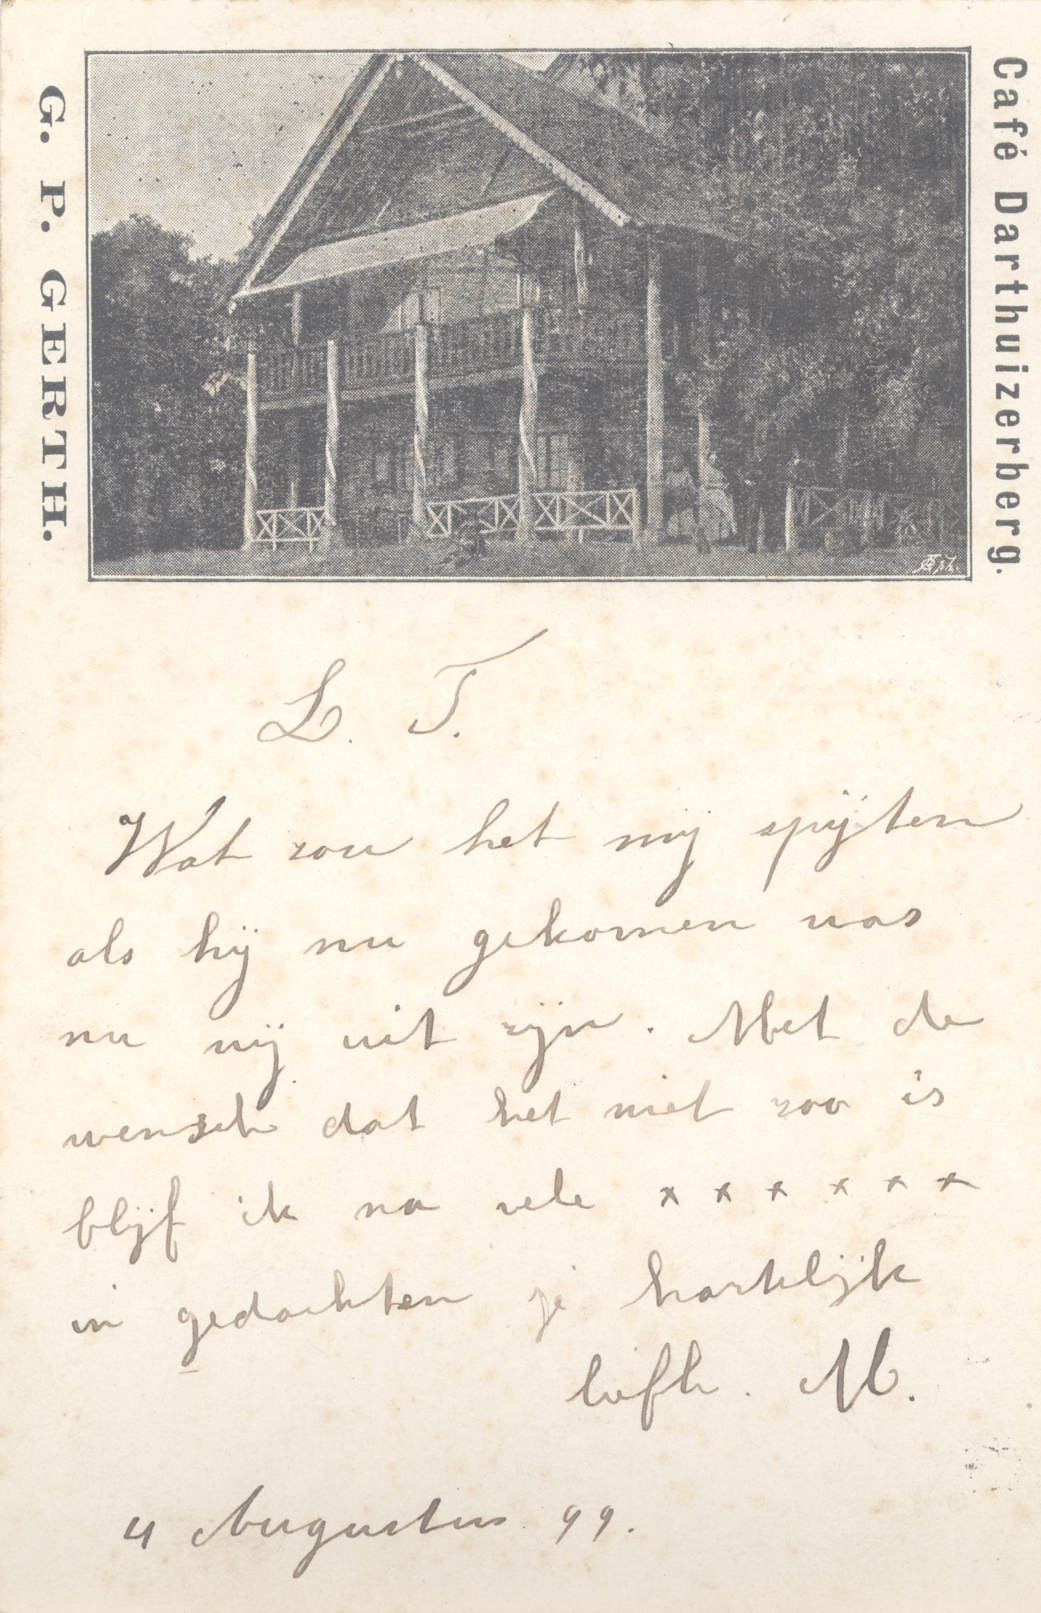 G. P. GERTH.
Café Darthuizerberg.
L. T.
Wat zou het mij spijten
als hij nu gekomen was
nu wij uit zijn. Met de
wensch dat het niet zoo is
blijf ik na vele x x x x x x
in gedachten je hartelijk
liefh. M.
4 Augustus 99.